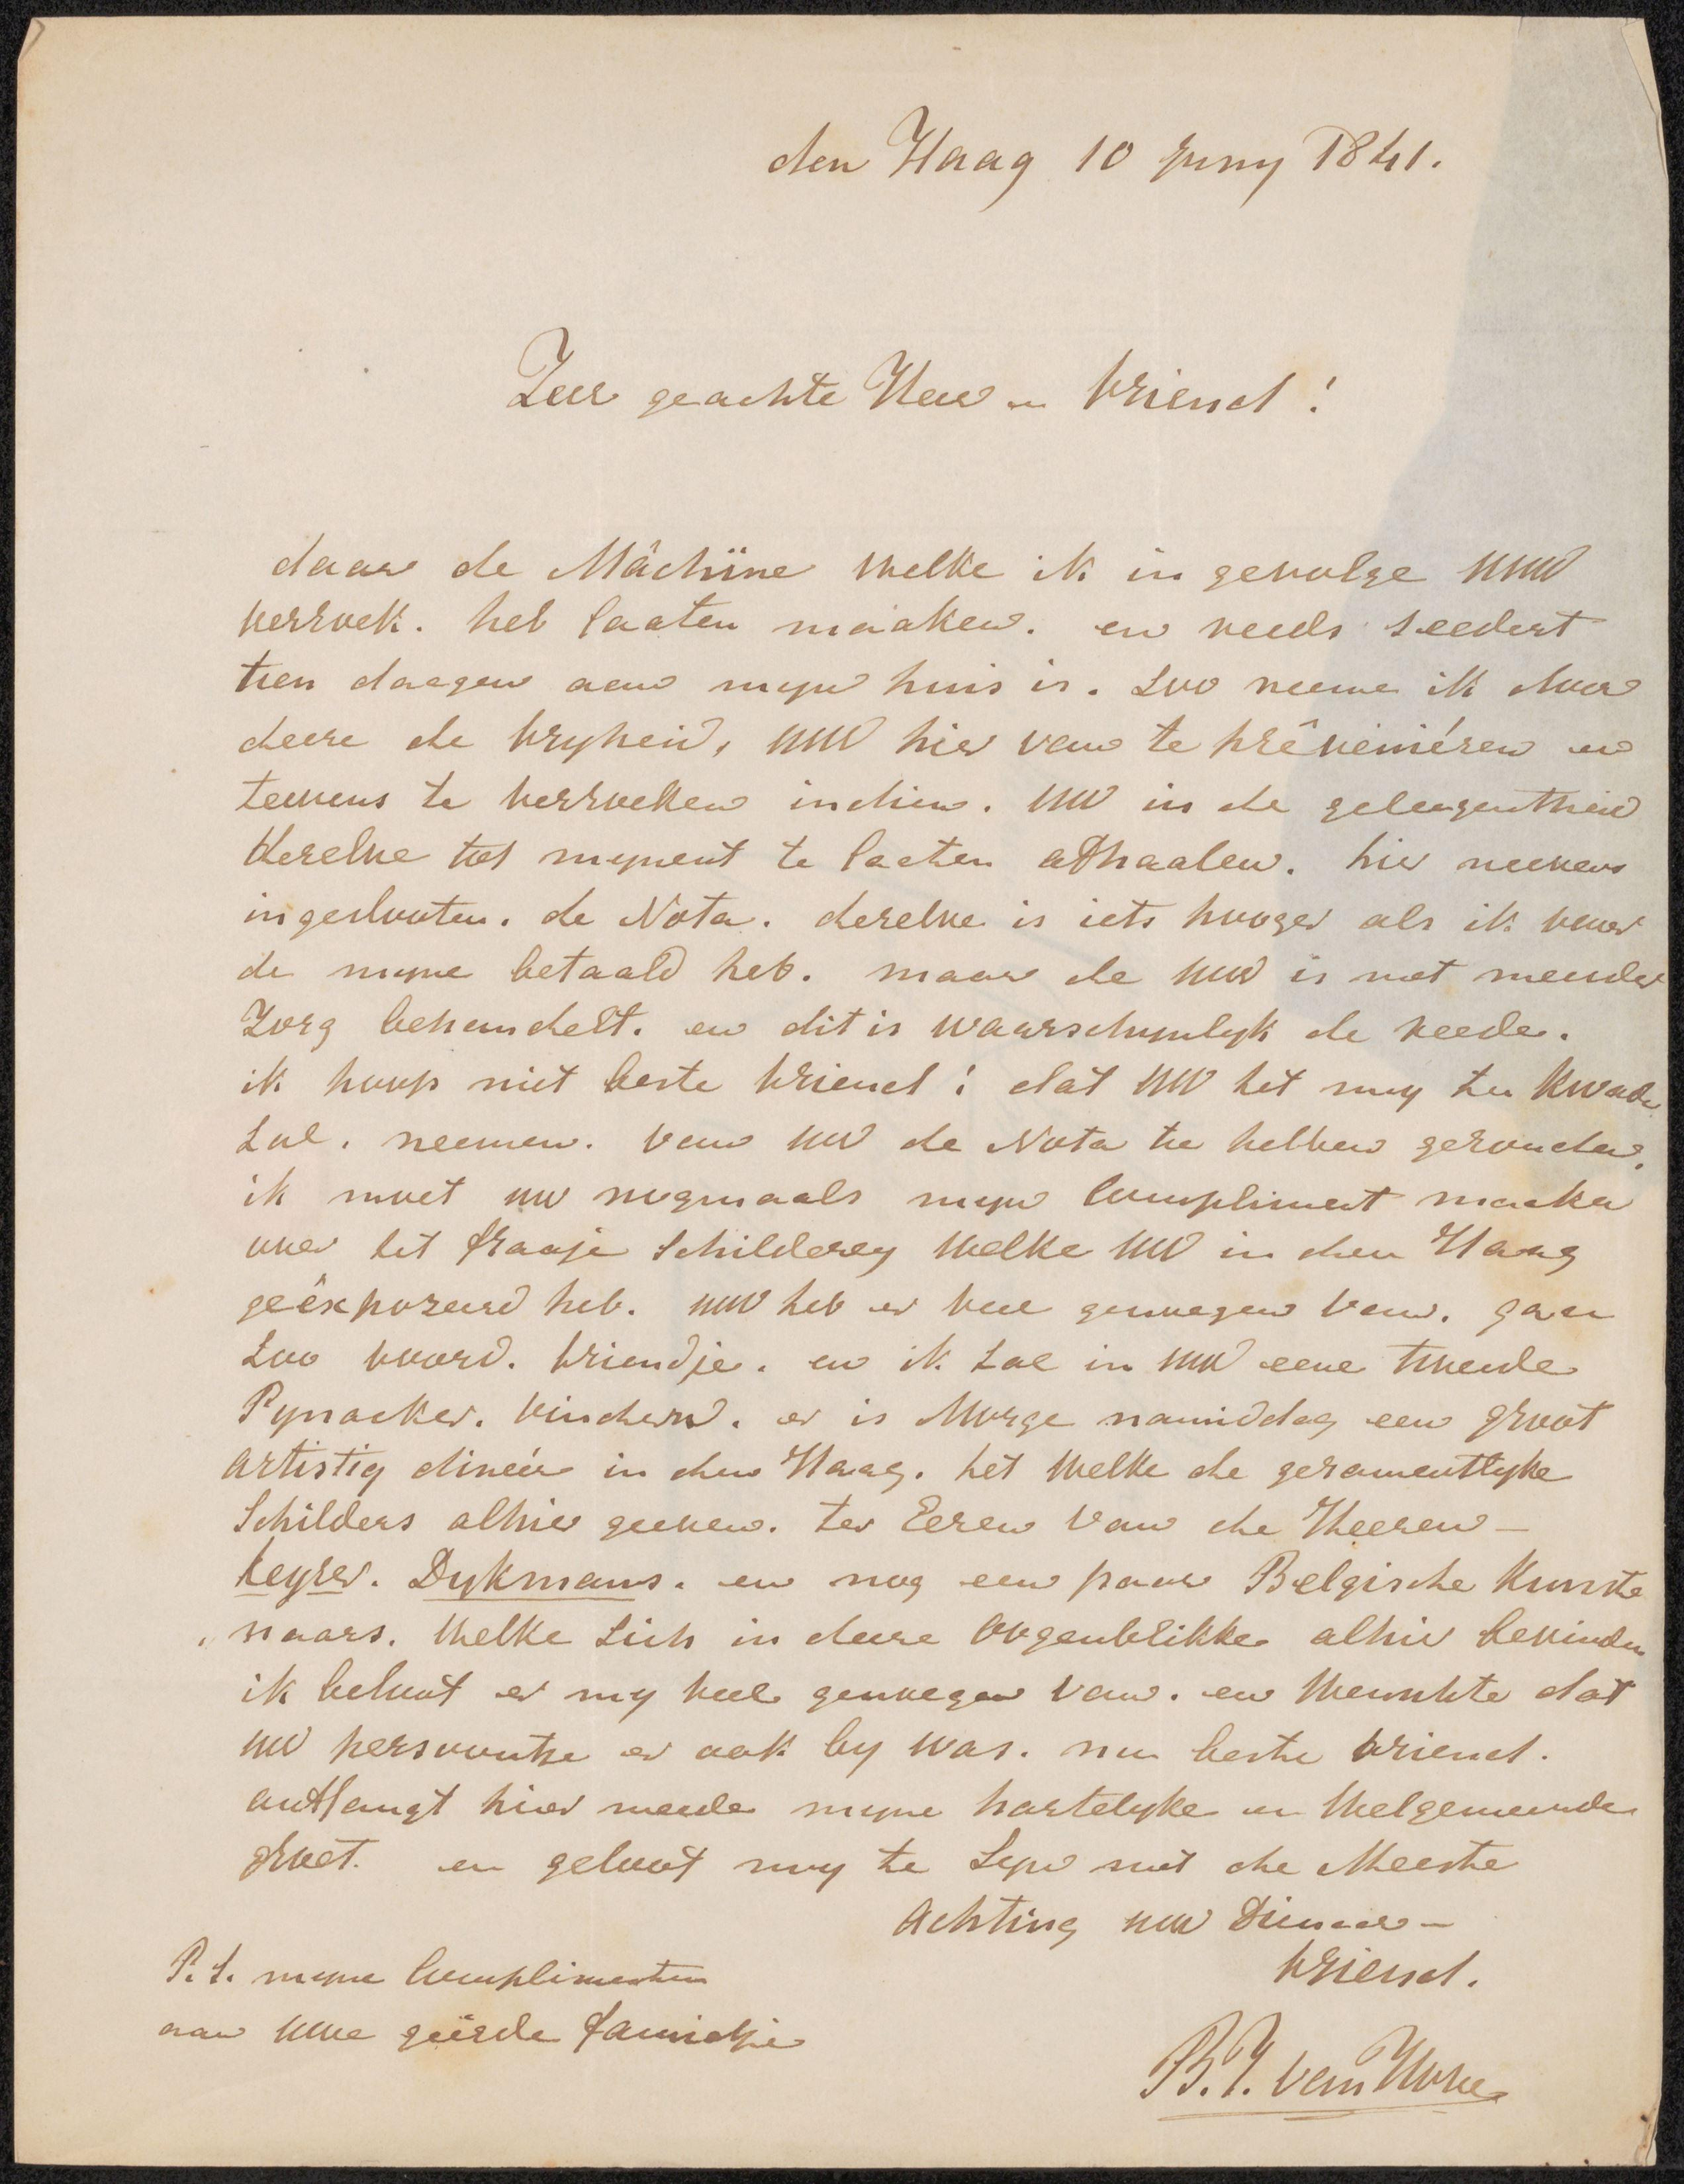 den Haag 10 Juny 1841.
Zeer geachte Heer en Vriend!
daar de Mâchïne welke ik in gevolge UUW
verzoek. heb laaten maaken. en reeds seedert
tien daagen aan myn huis is. Zoo neeme ik door
deeze de vryheid, UUW hier van te prêveniéren en
teevens te verzoeken indien. UW in de geleegentheid
dezelve tot mynent te laaten afhaalen. hier neevens
ingeslooten. de Nota. dezelve is iets hooger als ik voor
de myne betaald heb. maar de UUW is met meerder
Zorg behandelt. en dit is waarschynlyk de reede.
ik hoop niet beste Vriend! dat UW het my ten kwade
Zal. neemen. van UW de Nota te hebben gezonden.
ik moet uw nogmaals myn Compliment maaken
over het fraaje Schilderey welke UW in den Haag
geêxpozeerd heb. UUW heb er veel genoegen van. gaa
Zoo voord. Vriendje. en ik Zal in UUW eene tweede
Pynacker. vinden. er is Morge namiddag een groot
artistig dineér in den Haag. het welke de gezamentlyke
Schilders alhier geeven. ter Eeren van de Heeren –
keyser. Dykmans. en nog een paar Belgische Kunste
„ naars. welke Zich in deeze oogenblikke alhier bevinden
ik beloof er my veel genoegen van. en wenschte dat
UW persoontje er ook by was. nu beste Vriend.
ontfangt hier meede myne hartelyke en welgemeende
groet. en geloof my te Zyn met de Meeste
achting uw Dienaar –
Vriend.
P.S. myne Complimenten
aan uwe geëerde famielje
B.J. van Hove